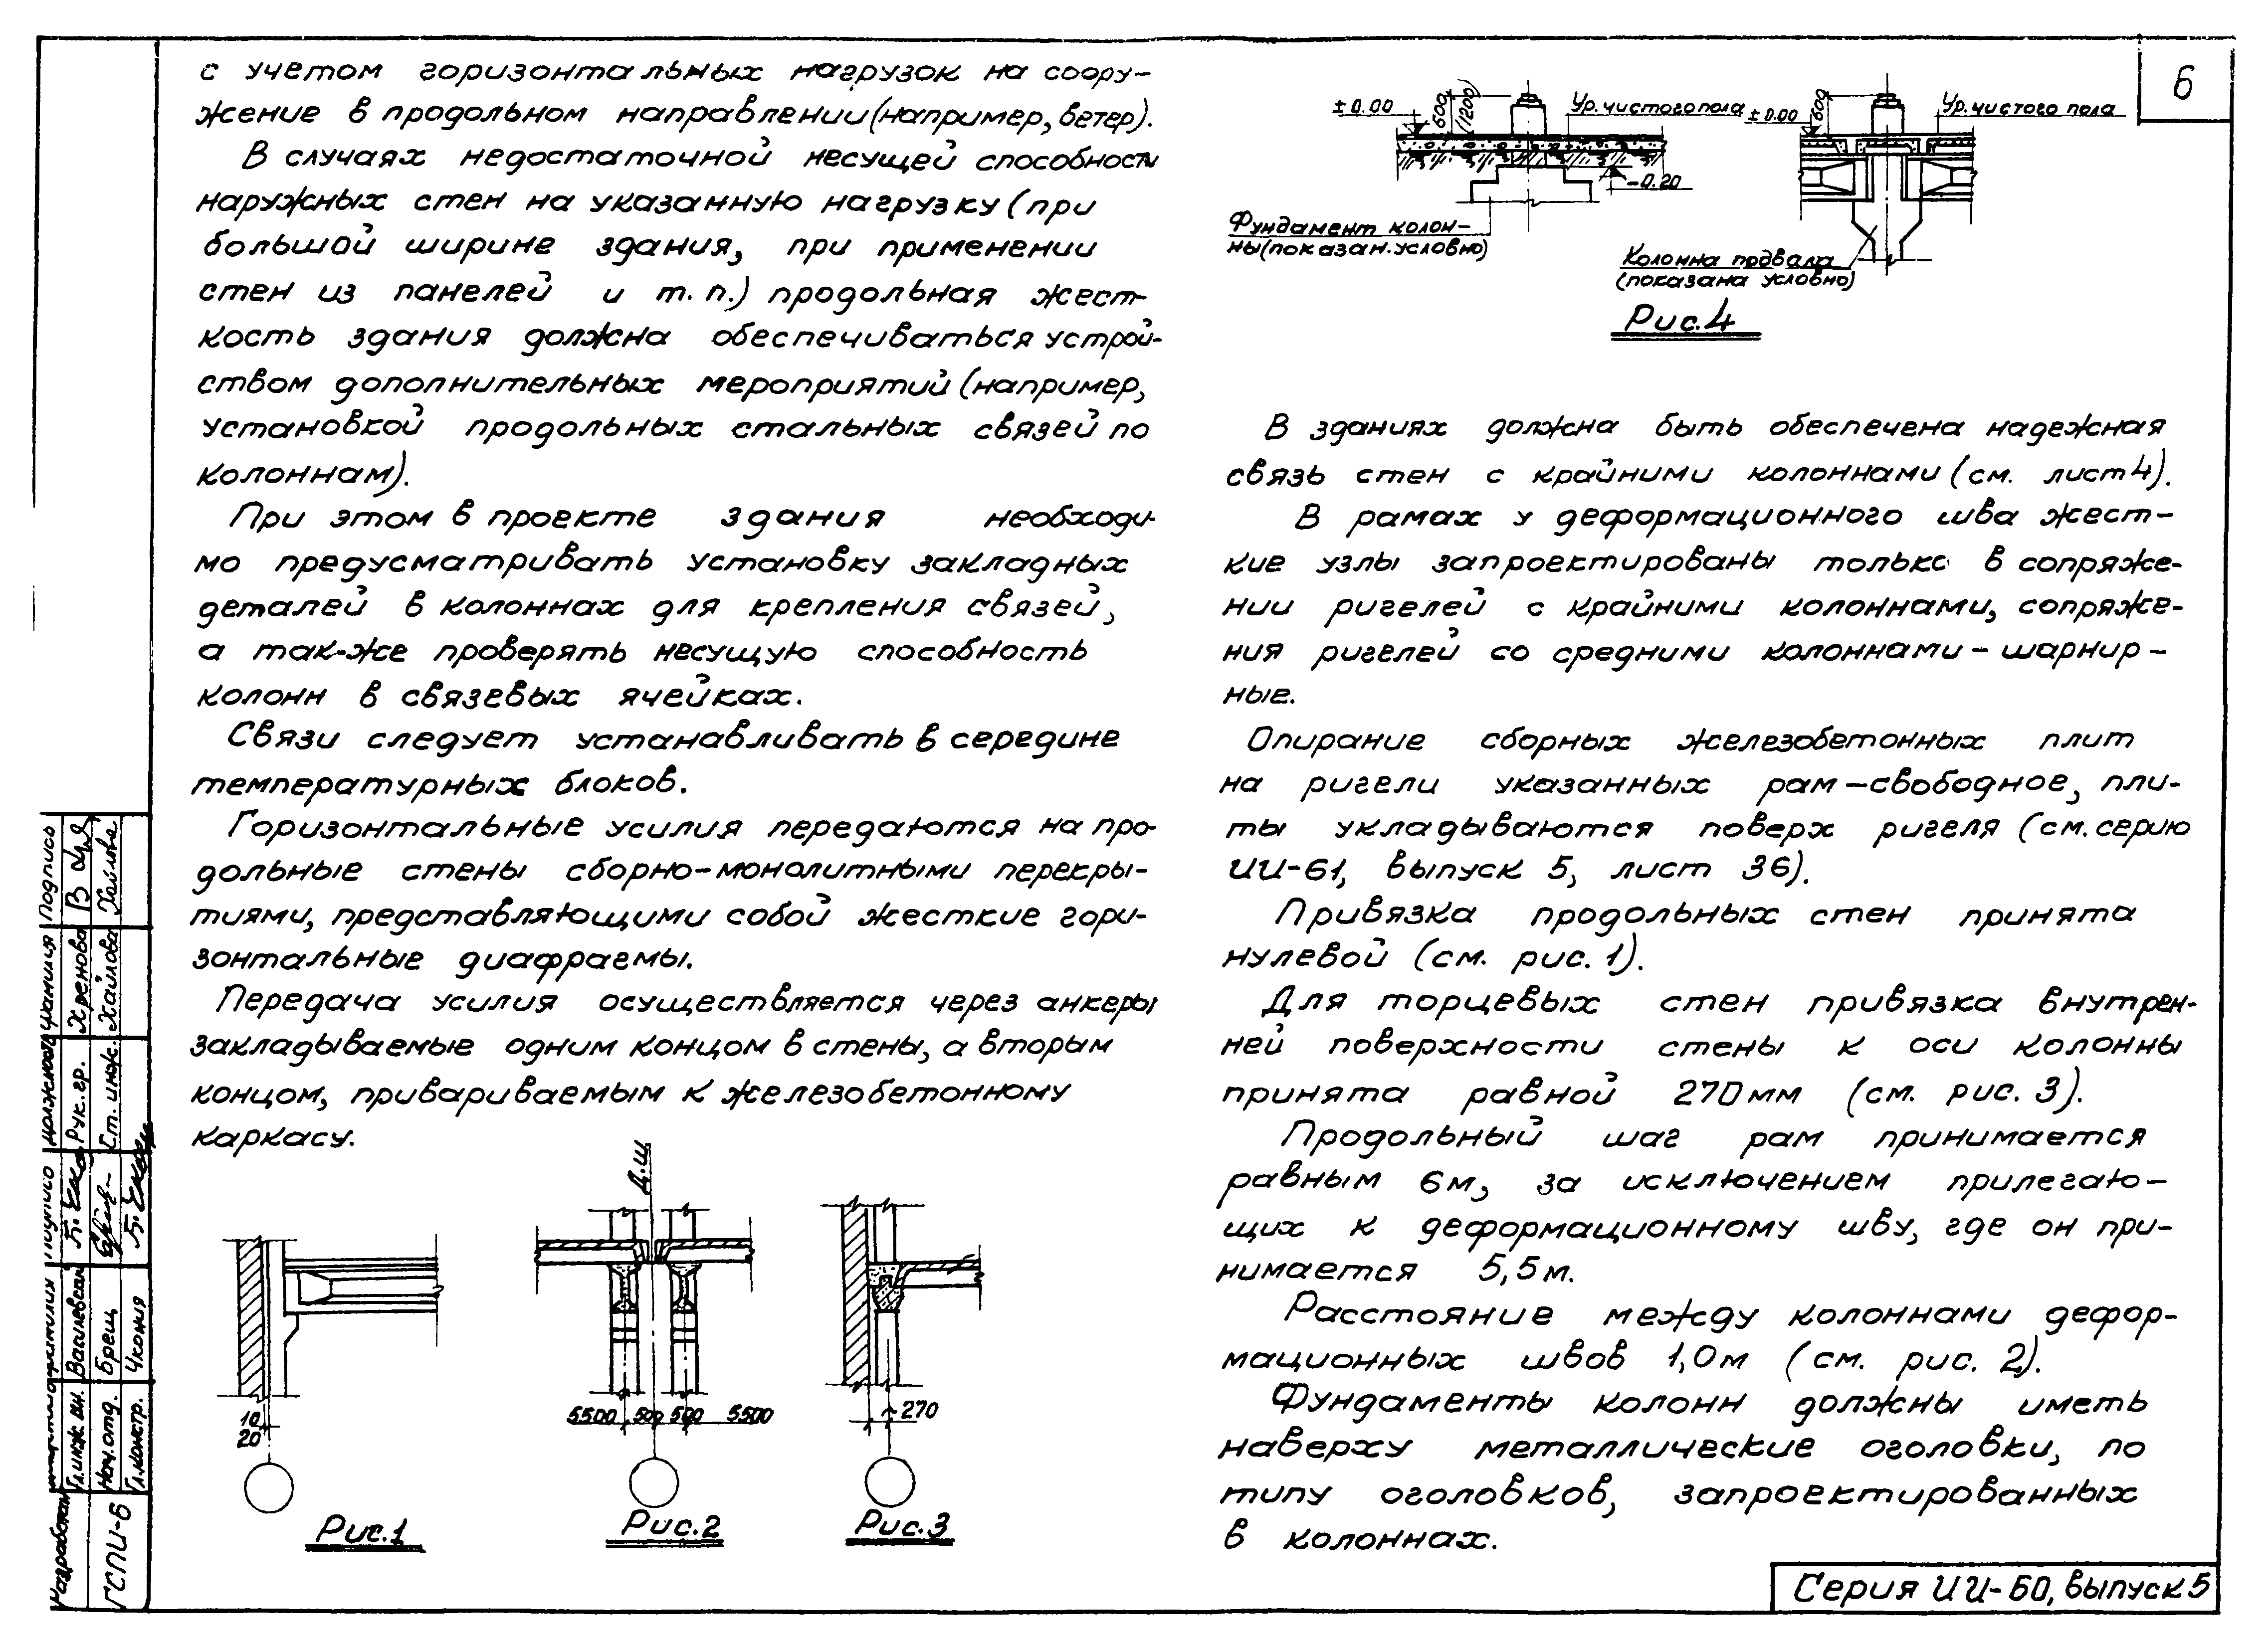 с учетом горизонтальных нагрузок на соору-
жение в продольном направлении (например, ветер).
В случаях недостаточной несущей способности
наружных стен на указанную нагрузку (при
большой ширине здания, при применении
стен из панелей и т.п.) продольная жест-
кость здания должна обеспечиваться устрой-
ством дополнительных мероприятий (например,
установкой продольных стальных связей по
колоннам).
При этом в проекте здания необходи-
мо предусматривать установку закладных
деталей в колоннах для крепления связей,
а так-же проверять несущую способность
колонн в связевых ячейках.
Связи следует устанавливать в середине
температурных блоков.
Горизонтальные усилия передаются на про-
дольные стены сборно-монолитными перекры-
тиями, представляющими собой жесткие гори-
зонтальные диафрагмы.
Передача усилия осуществляется через анкеры
закладываемые одним концом в стены, а вторым
концом, привариваемым к железобетонному
каркасу.
Д.Ш.
10
20
5500 500 500 5500
270
Рис.1
Рис.2
Рис.3
6
±0.00
600
(1200)
Ур. чистого пола
-0.20
Фундамент колон-
ны (показан. условно)
±0.00
600
Ур. чистого пола
Колонна подвала
(показана условно)
Рис.4
В зданиях должна быть обеспечена надежная
связь стен с крайними колоннами (см. лист 4).
В рамах у деформационного шва жест-
кие узлы запроектированы только в сопряже-
нии ригелей с крайними колоннами, сопряже-
ния ригелей со средними колоннами - шарнир-
ные.
Опирание сборных железобетонных плит
на ригели указанных рам - свободное, пли-
ты укладываются поверх ригеля (см. серию
ИИ-61, выпуск 5, лист 36).
Привязка продольных стен принята
нулевой (см. рис. 1).
Для торцевых стен привязка внутрен-
ней поверхности стены к оси колонны
принята равной 270 мм (см. рис. 3).
Продольный шаг рам принимается
равным 6м, за исключением прилегаю-
щих к деформационному шву, где он при-
нимается 5,5м.
Расстояние между колоннами дефор-
мационных швов 1,0м (см. рис. 2).
Фундаменты колонн должны иметь
наверху металлические оголовки, по
типу оголовков, запроектированных
в колоннах.
Серия ИИ-60, выпуск 5
Разработан
ГСПИ-6
Гл.инж.ин.
Нач.отд. Брещ
Гл.констр. Чкония
Должность Фамилия Подпись
Рук.гр. Хренова
Ст. инж. Хайлова